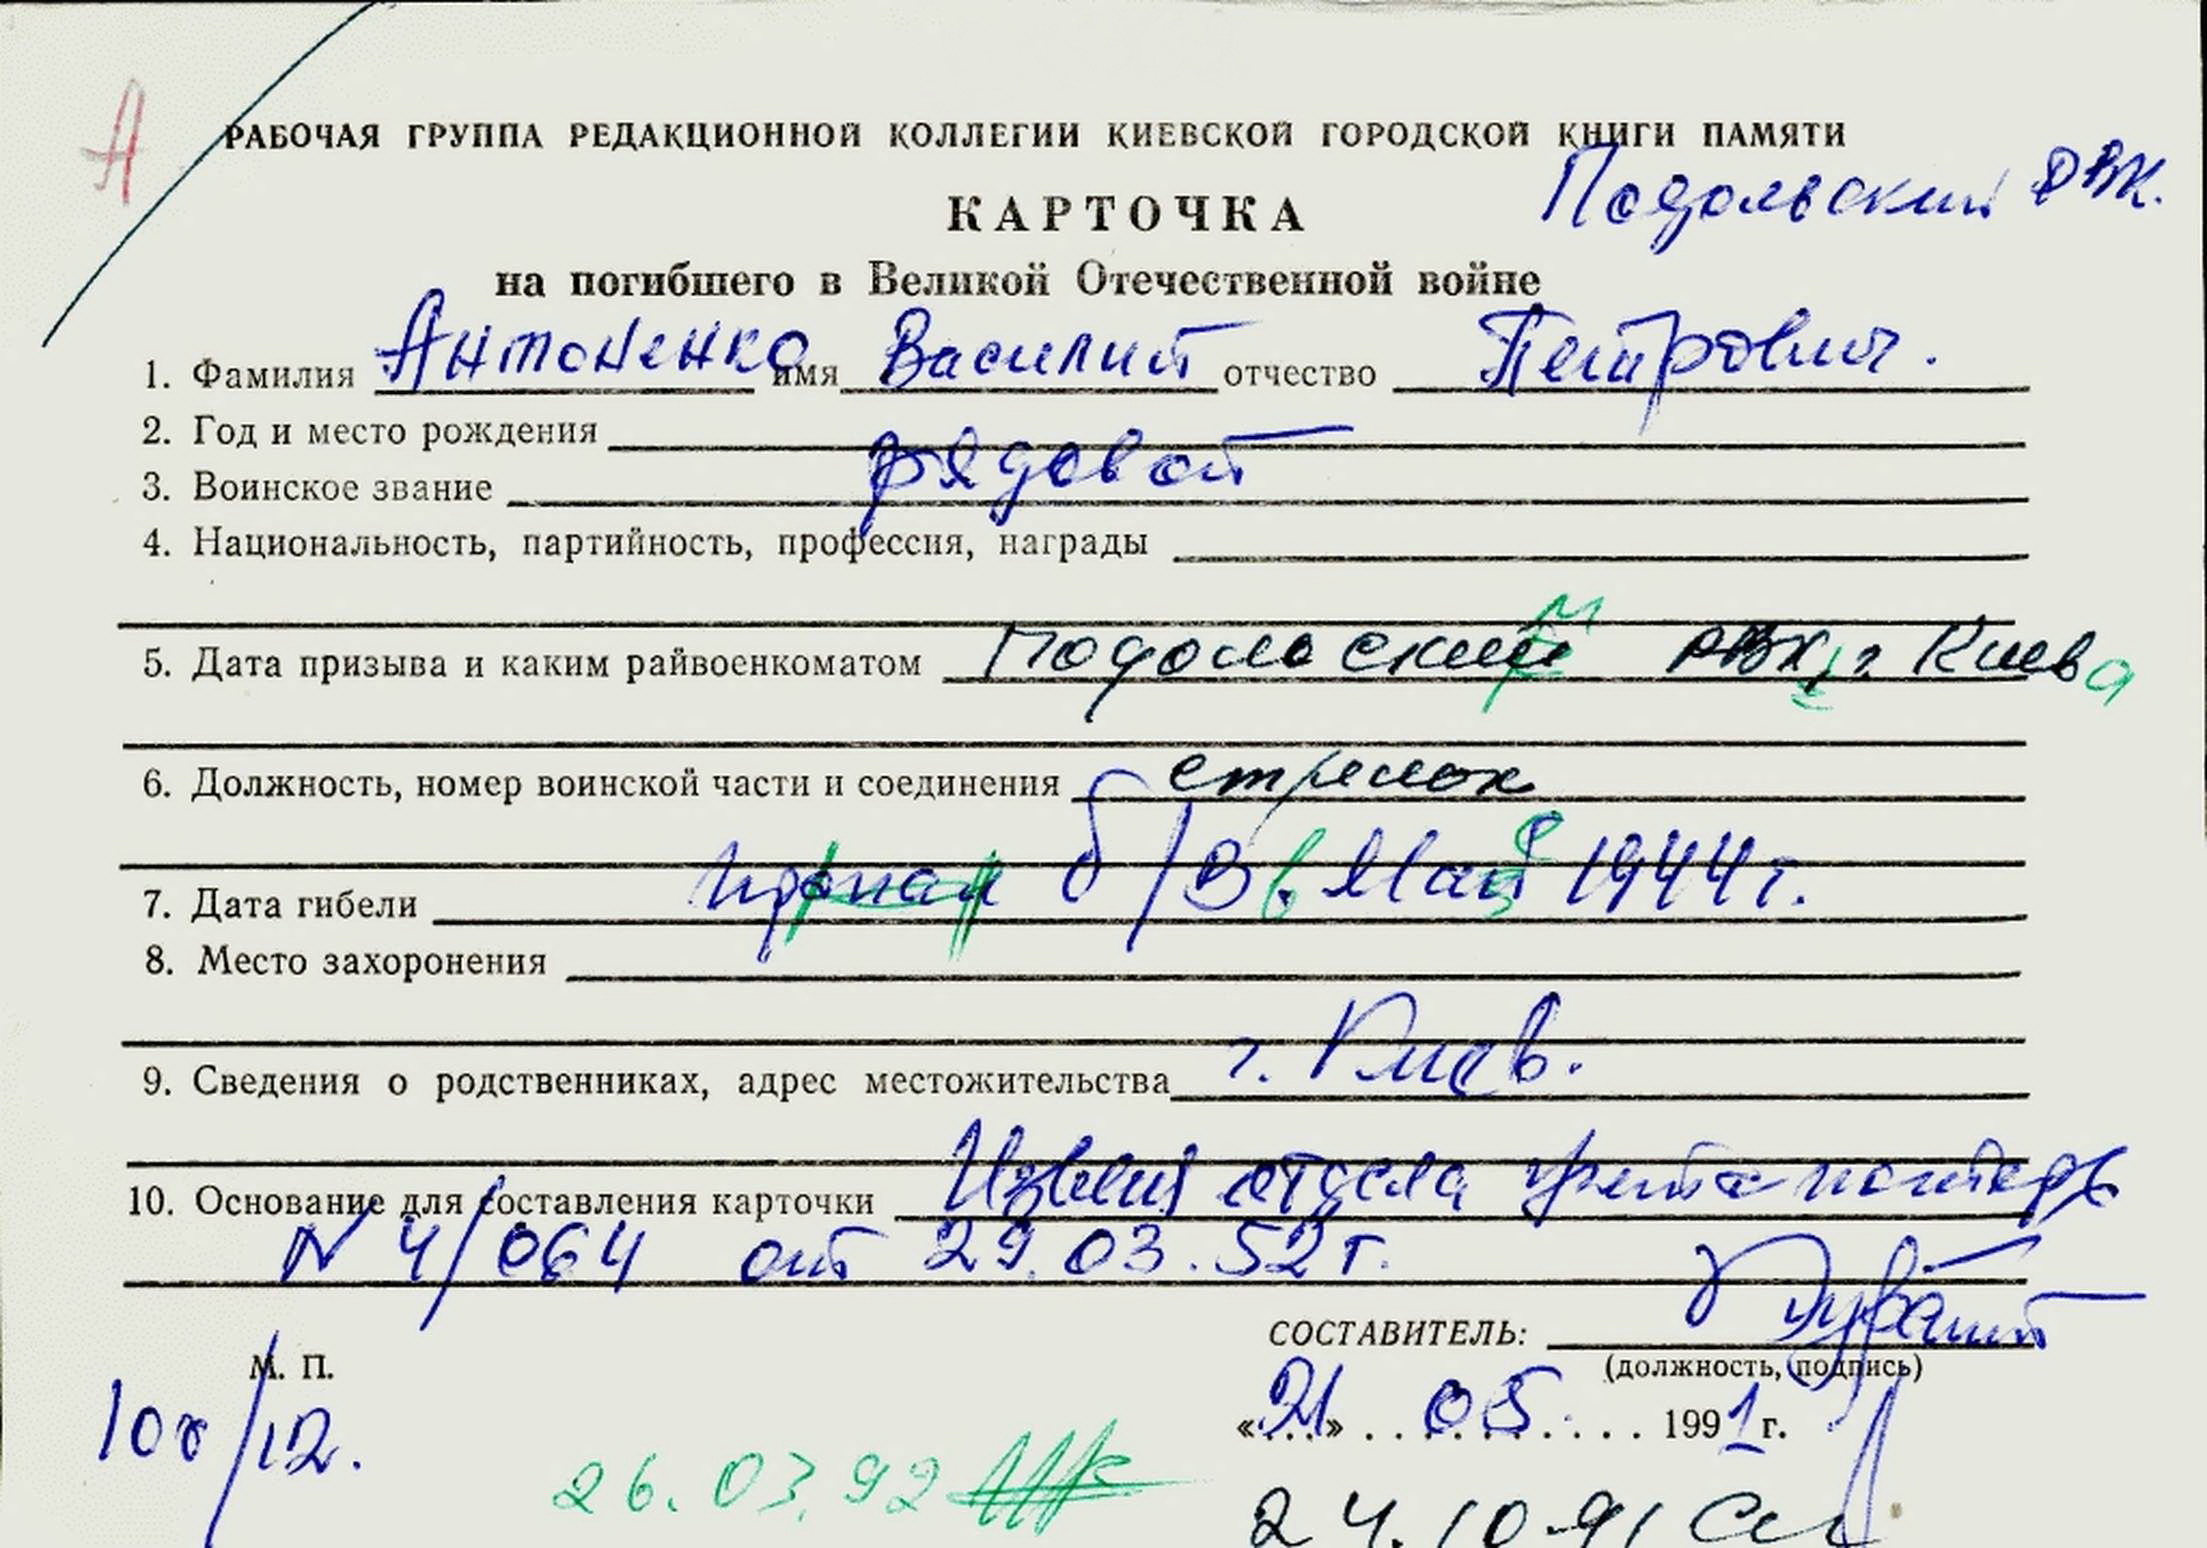 А
РАБОЧАЯ ГРУППА РЕДАКЦИОННОЙ КОЛЛЕГИИ КИЕВСКОЙ ГОРОДСКОЙ КНИГИ ПАМЯТИ
Подольский РВК.
КАРТОЧКА
на погибшего в Великой Отечественной войне
1. Фамилия Антоненко имя Василий отчество Петрович.
2. Год и место рождения
3. Воинское звание рядовой
4. Национальность, партийность, профессия, награды
5. Дата призыва и каким райвоенкоматом Подольским РВК, г. Киева
6. Должность, номер воинской части и соединения стрелок
7. Дата гибели пропал б/в в мае 1944 г.
8. Место захоронения
9. Сведения о родственниках, адрес местожительства г. Киев.
10. Основание для составления карточки отдела учета потерь
N 4/064 от 29.03.52 г.
СОСТАВИТЕЛЬ:
М. П. (должность, подпись)
«21» 05 1991 г.
26.03.92
24.10.91